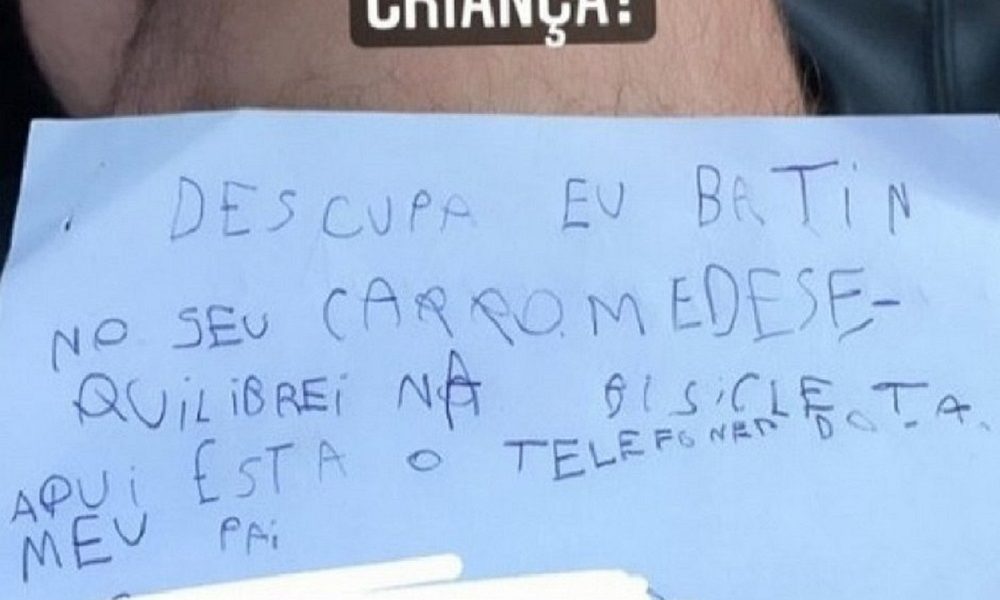 CRIANÇA!
DESCUPA EU BATIN
NO SEU CARRO. MEDESE-
QUILIBREI NA BISICLETA.
AQUI ESTA O TELEFONER DO
MEU PAI